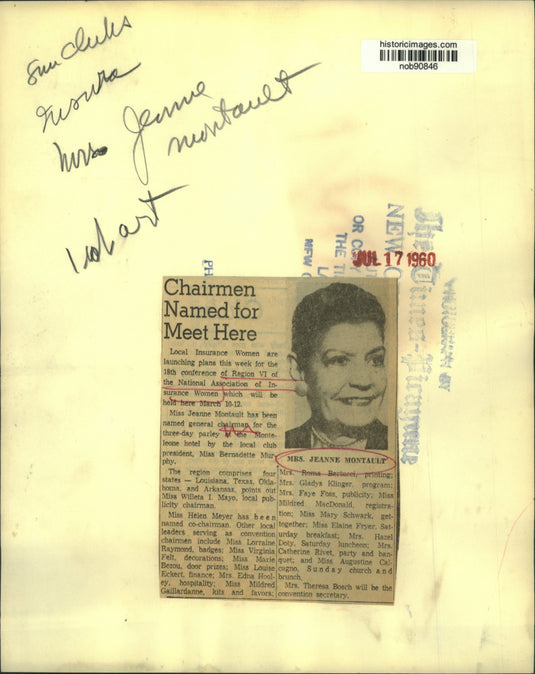 historicimages.com
nob90846
Mrs Jeanne
Montault
JUL 17 1960
The Times-Picayune
NEW O
OR COPY
THE TI
NEW O
PH
Chairmen
Named for
Meet Here
Local Insurance Women are
launching plans this week for the
18th conference of Region VI of
the National Association of In-
surance Women which will be
held here March 10-12.
Miss Jeanne Montault has been
named general chairman for the
three-day parley at the Monte-
leone hotel by the local club
president, Miss Bernadette Mur-
phy.
The region comprises four
states — Louisiana, Texas, Okla-
homa, and Arkansas, points out
Miss Willeta I. Mayo, local pub-
licity chairman.
Miss Helen Meyer has been
named co-chairman. Other local
leaders serving as convention
chairmen include Miss Lorraine
Raymond, badges; Miss Virginia
Felt, decorations; Miss Marie
Bezou, door prizes; Miss Louise
Eckert, finance; Mrs. Edna Houl-
ey, hospitality; Miss Mildred
Gaillardanne, kits and favors;
MRS. JEANNE MONTAULT
Mrs. Roma Bertucci, printing;
Mrs. Gladys Klinger, program;
Mrs. Faye Foss, publicity; Miss
Mildred MacDonald, registra-
tion; Miss Mary Schwark, get-
together; Miss Elaine Fryer, Sat-
urday breakfast; Mrs. Hazel
Doty, Saturday luncheon; Mrs.
Catherine Rivet, party and ban-
quet; and Miss Augustine Cal-
cagno, Sunday church and
brunch.
Mrs. Theresa Bosch will be the
convention secretary.